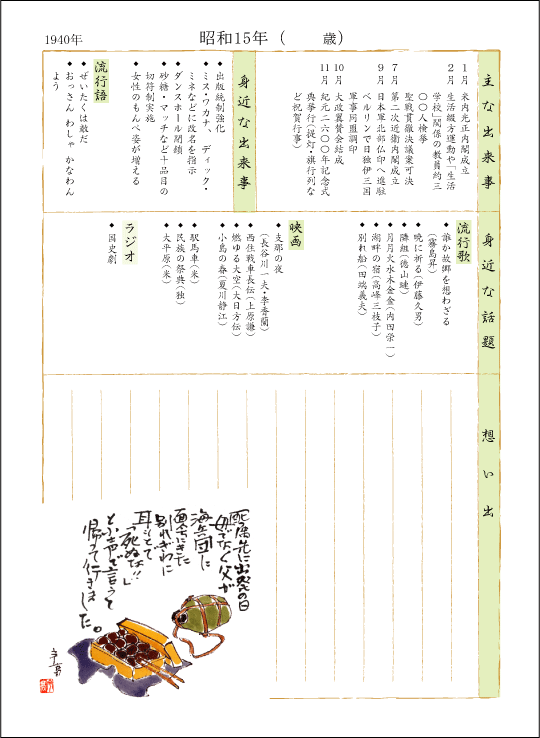 1940年
昭和15年（　　歳）
主な出来事
１月 米内光正内閣成立
２月 生活綴方運動や「生活
学校」関係の教員約三
〇〇人検挙
聖戦貫徹決議案可決
７月 第二次近衛内閣成立
９月 日本軍北部仏印へ進駐
ベルリンで日独伊三国
軍事同盟調印
10月 大政翼賛会結成
11月 紀元二六〇〇年記念式
典挙行（提灯・旗行列な
ど祝賀行事）
身近な出来事
◆出版統制強化
◆ミス・ワカナ、ディック・
ミネなどに改名を指示
◆ダンスホール閉鎖
◆砂糖・マッチなど十品目の
切符制実施
◆女性のもんぺ姿が増える
流行語
◆ぜいたくは敵だ
◆おっさん わしゃ かなわん
よう
身近な話題
流行歌
◆誰か故郷を想わざる
（霧島昇）
◆暁に祈る（伊藤久男）
◆隣組（徳山璉）
◆月月火水木金金（内田栄一）
◆湖畔の宿（高峰三枝子）
◆別れ船（田端義夫）
映画
◆支那の夜
（長谷川一夫・李香蘭）
◆西住戦車長伝（上原謙）
◆燃ゆる大空（大日方伝）
◆小島の春（夏川静江）
◆駅馬車（米）
◆民族の祭典（独）
◆大平原（米）
ラジオ
◆国史劇
想い出
配属先に出発の日
母でなく父が
海兵団に
面会にきた
別れぎわに
耳もとで
「死ぬな!!」
と小声で言うと
帰って行きました。